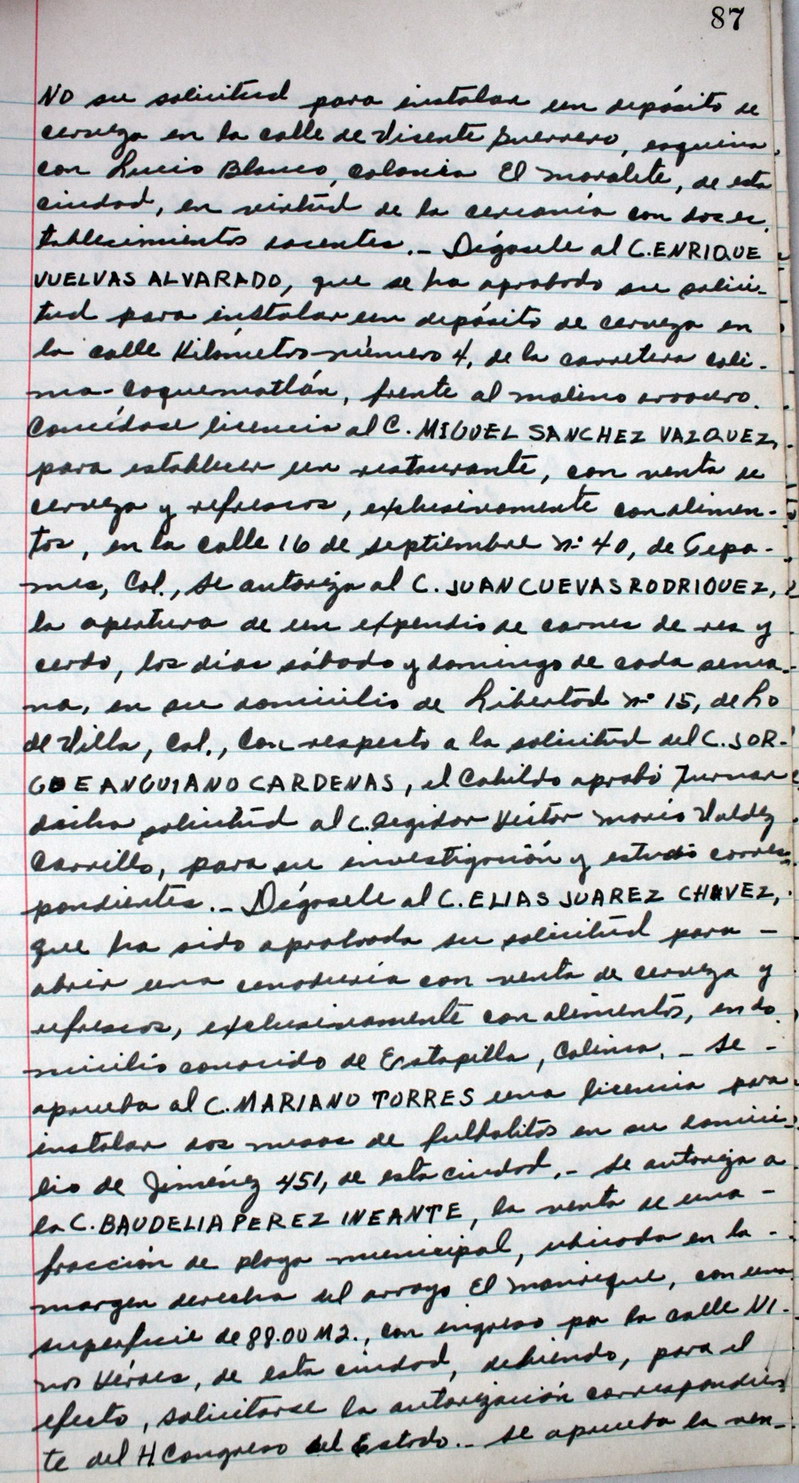 87
NO su solicitud para instalar un depósito de
cerveza en la calle de Vicente Guerrero, esquina
con Lucio Blanco, colonia El Moralete, de esta
ciudad, en virtud de la cercanía con dos es-
tablecimientos docentes.- Dígasele al C. ENRIQUE
VUELVAS ALVARADO, que se ha aprobado su solici-
tud para instalar un depósito de cerveza en
la calle Kilómetro número 4, de la carretera Coli-
ma-Coquimatlán, frente al molino arrocero.
Concédase licencia al C. MIGUEL SANCHEZ VAZQUEZ,
para establecer un restaurante, con venta de
cerveza y refrescos, exclusivamente con alimen-
tos, en la calle 16 de septiembre n° 40, de Tepa-
mes, Col., Se autoriza al C. JUAN CUEVAS RODRIQUEZ,
la apertura de un expendio de carnes de res y
cerdo, los días sábado y domingo de cada sema-
na, en su domicilio de Libertad n° 15, de Lo
de Villa, Col., Con respecto a la solicitud del C. JOR-
GE ANGUIANO CARDENAS, el Cabildo aprobó turnar
dicha solicitud al C. Regidor Víctor Mario Valdez
Carrillo, para su investigación y estudio corres
pondientes.- Dígasele al C. ELIAS JUAREZ CHAVEZ,
que ha sido aprobada su solicitud para -
abrir una cenaduría con venta de cerveza y
refrescos, exclusivamente con alimentos, en do
micilio conocido de Estapilla, Colima. - Se -
aprueba al C. MARIANO TORRES una licencia para
instalar dos mesas de futbolitos en su domici-
lio de Jiménez 451, de esta ciudad.- Se autoriza a
la C. BAUDELIA PEREZ INFANTE, la venta de una -
fracción de playa municipal, ubicada en la -
margen derecha del arroyo El Manrique, con una
superficie de 88.00 M2., con ingreso por la calle NI-
ños Héroes, de esta ciudad, debiendo, para el
efecto, solicitarse la autorización correspondien
te del H. Congreso del Estado.- Se aprueba la ven-